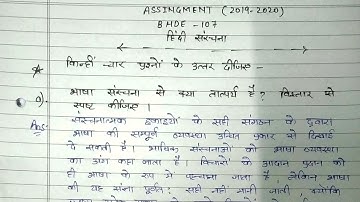 ASSINGMENT (2019-2020)
BHDE-107
हिंदी संरचना
किन्हीं चार प्रश्नों के उत्तर दीजिए -
भाषा संरचना से क्या तात्पर्य है? विस्तार से
स्पष्ट कीजिए।
Ans: संरचनात्मक इकाइयों के सही संगठन के द्वारा
भाषा की सम्पूर्ण व्यवस्था उचित प्रकार से दिखाई
दे सकती है। भाषिक संरचनाओं को भाषा व्यवस्था
का अंग कहा जाता है। विचारों के आदान प्रदान को
ही भाषा के रूप में पहचाना जाता है, लेकिन भाषा
की यह संज्ञा पूर्णतः सही नहीं मानी जाती क्योंकि